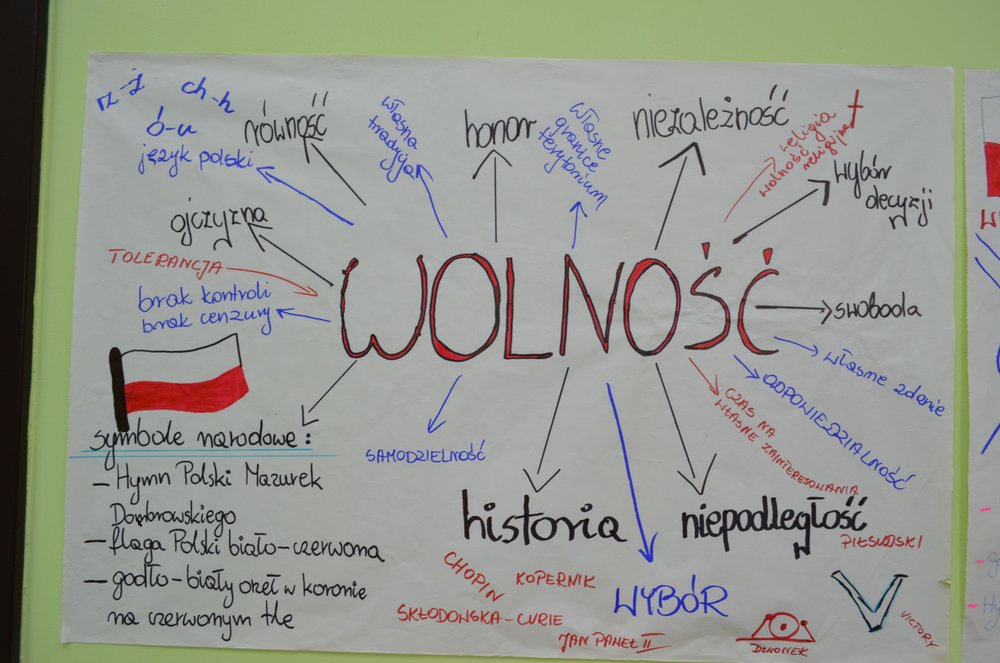 rz-ż
ch-h
ó-u
język polski
równość
własna
tradycja
honor
własne
granice
terytorium
niezależność
religia
wolność religijna
wybór
decyzji
ojczyzna
TOLERANCJA
brak kontroli
brak cenzury
WOLNOŚĆ
swoboda
własne zdanie
ODPOWIEDZIALNOŚĆ
CZAS NA
WŁASNE ZAINTERESOWANIA
symbole narodowe:
- Hymn Polski Mazurek
Dąbrowskiego
- flaga Polski biało-czerwona
- godło-biały orzeł w koronie
na czerwonym tle
SAMODZIELNOŚĆ
historia
niepodległość
PIŁSUDSKI
CHOPIN
KOPERNIK
SKŁODOWSKA-CURIE
JAN PAWEŁ II
WYBÓR
DZWONEK
V
VICTORY